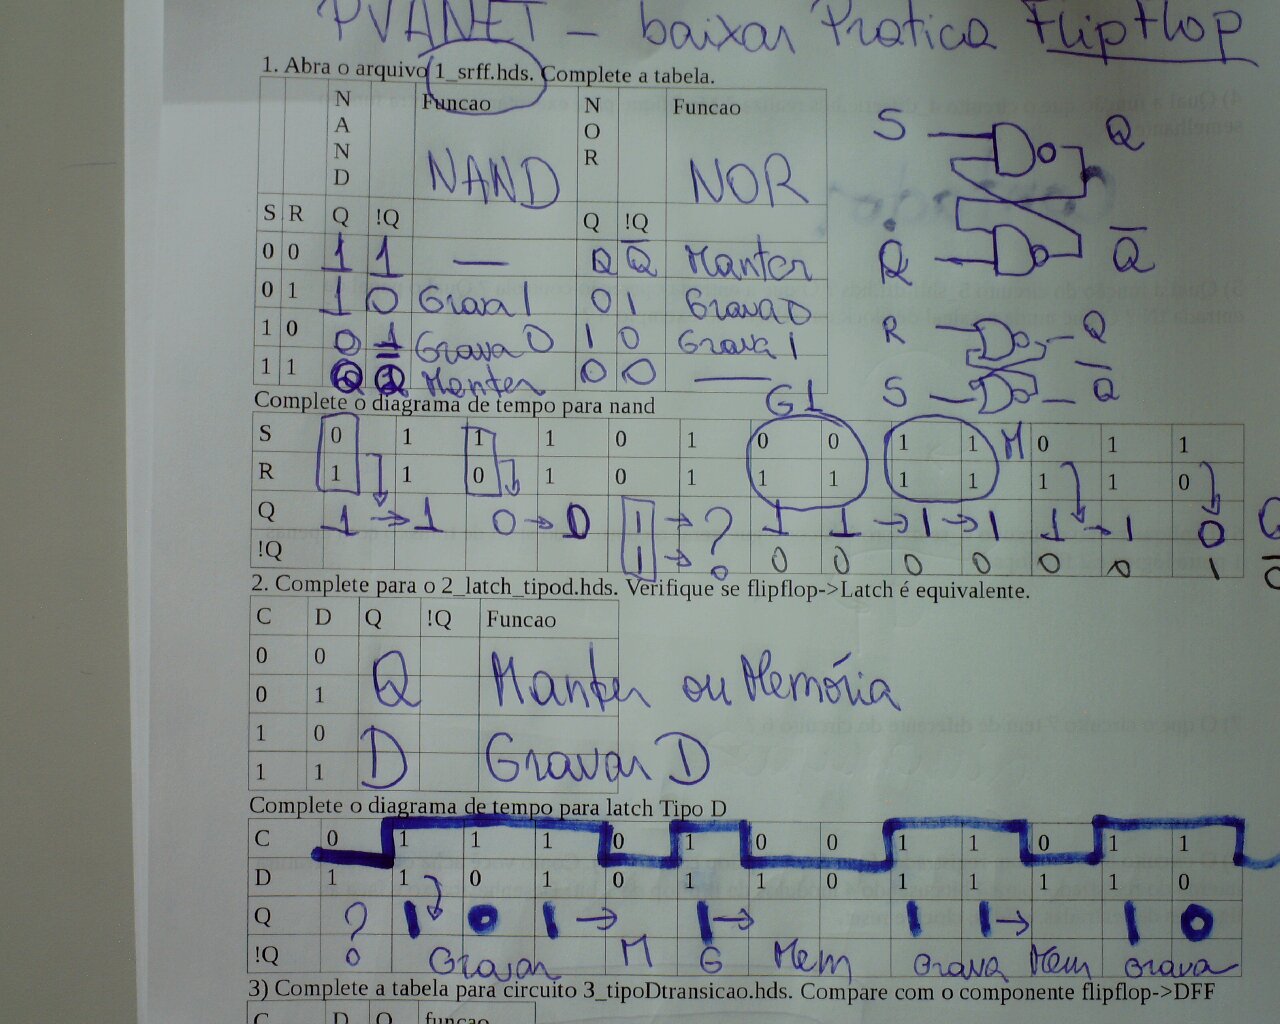 PVANET - baixar Pratica Flipflop
1. Abra o arquivo 1_srff.hds. Complete a tabela.
NAND Funcao NOR Funcao
NAND NOR
S R Q !Q Q !Q
0 0 1 1 — Q Q̅ Manter
0 1 1 0 Grava 1 0 1 Grava 0
1 0 0 1 Grava 0 1 0 Grava 1
1 1 Q Q̅ Manter 0 0 —
S Q
R Q̅
R Q
S Q̅
Complete o diagrama de tempo para nand
G1
S 0 1 1 1 0 1 0 0 1 1 M 0 1 1
R 1 1 0 1 0 1 1 1 1 1 1 1 0
Q 1 → 1 0 → 0 1 → ? 1 1 → 1 → 1 1 → 1 0 Q
!Q 1 → 0 0 0 0 0 0 1 Q̅
2. Complete para o 2_latch_tipod.hds. Verifique se flipflop->Latch é equivalente.
C D Q !Q Funcao
0 0
0 1
Q Manter ou Memória
1 0
1 1
D Gravar D
Complete o diagrama de tempo para latch Tipo D
C 0 1 1 1 0 1 0 0 1 1 0 1 1
D 1 1 0 1 0 1 1 0 1 1 1 1 0
Q ? 1 0 1 → 1 → 1 1 → 1 0
!Q Gravar M G Mem Grava Mem Grava
3) Complete a tabela para circuito 3_tipoDtransicao.hds. Compare com o componente flipflop->DFF
C D Q funcao